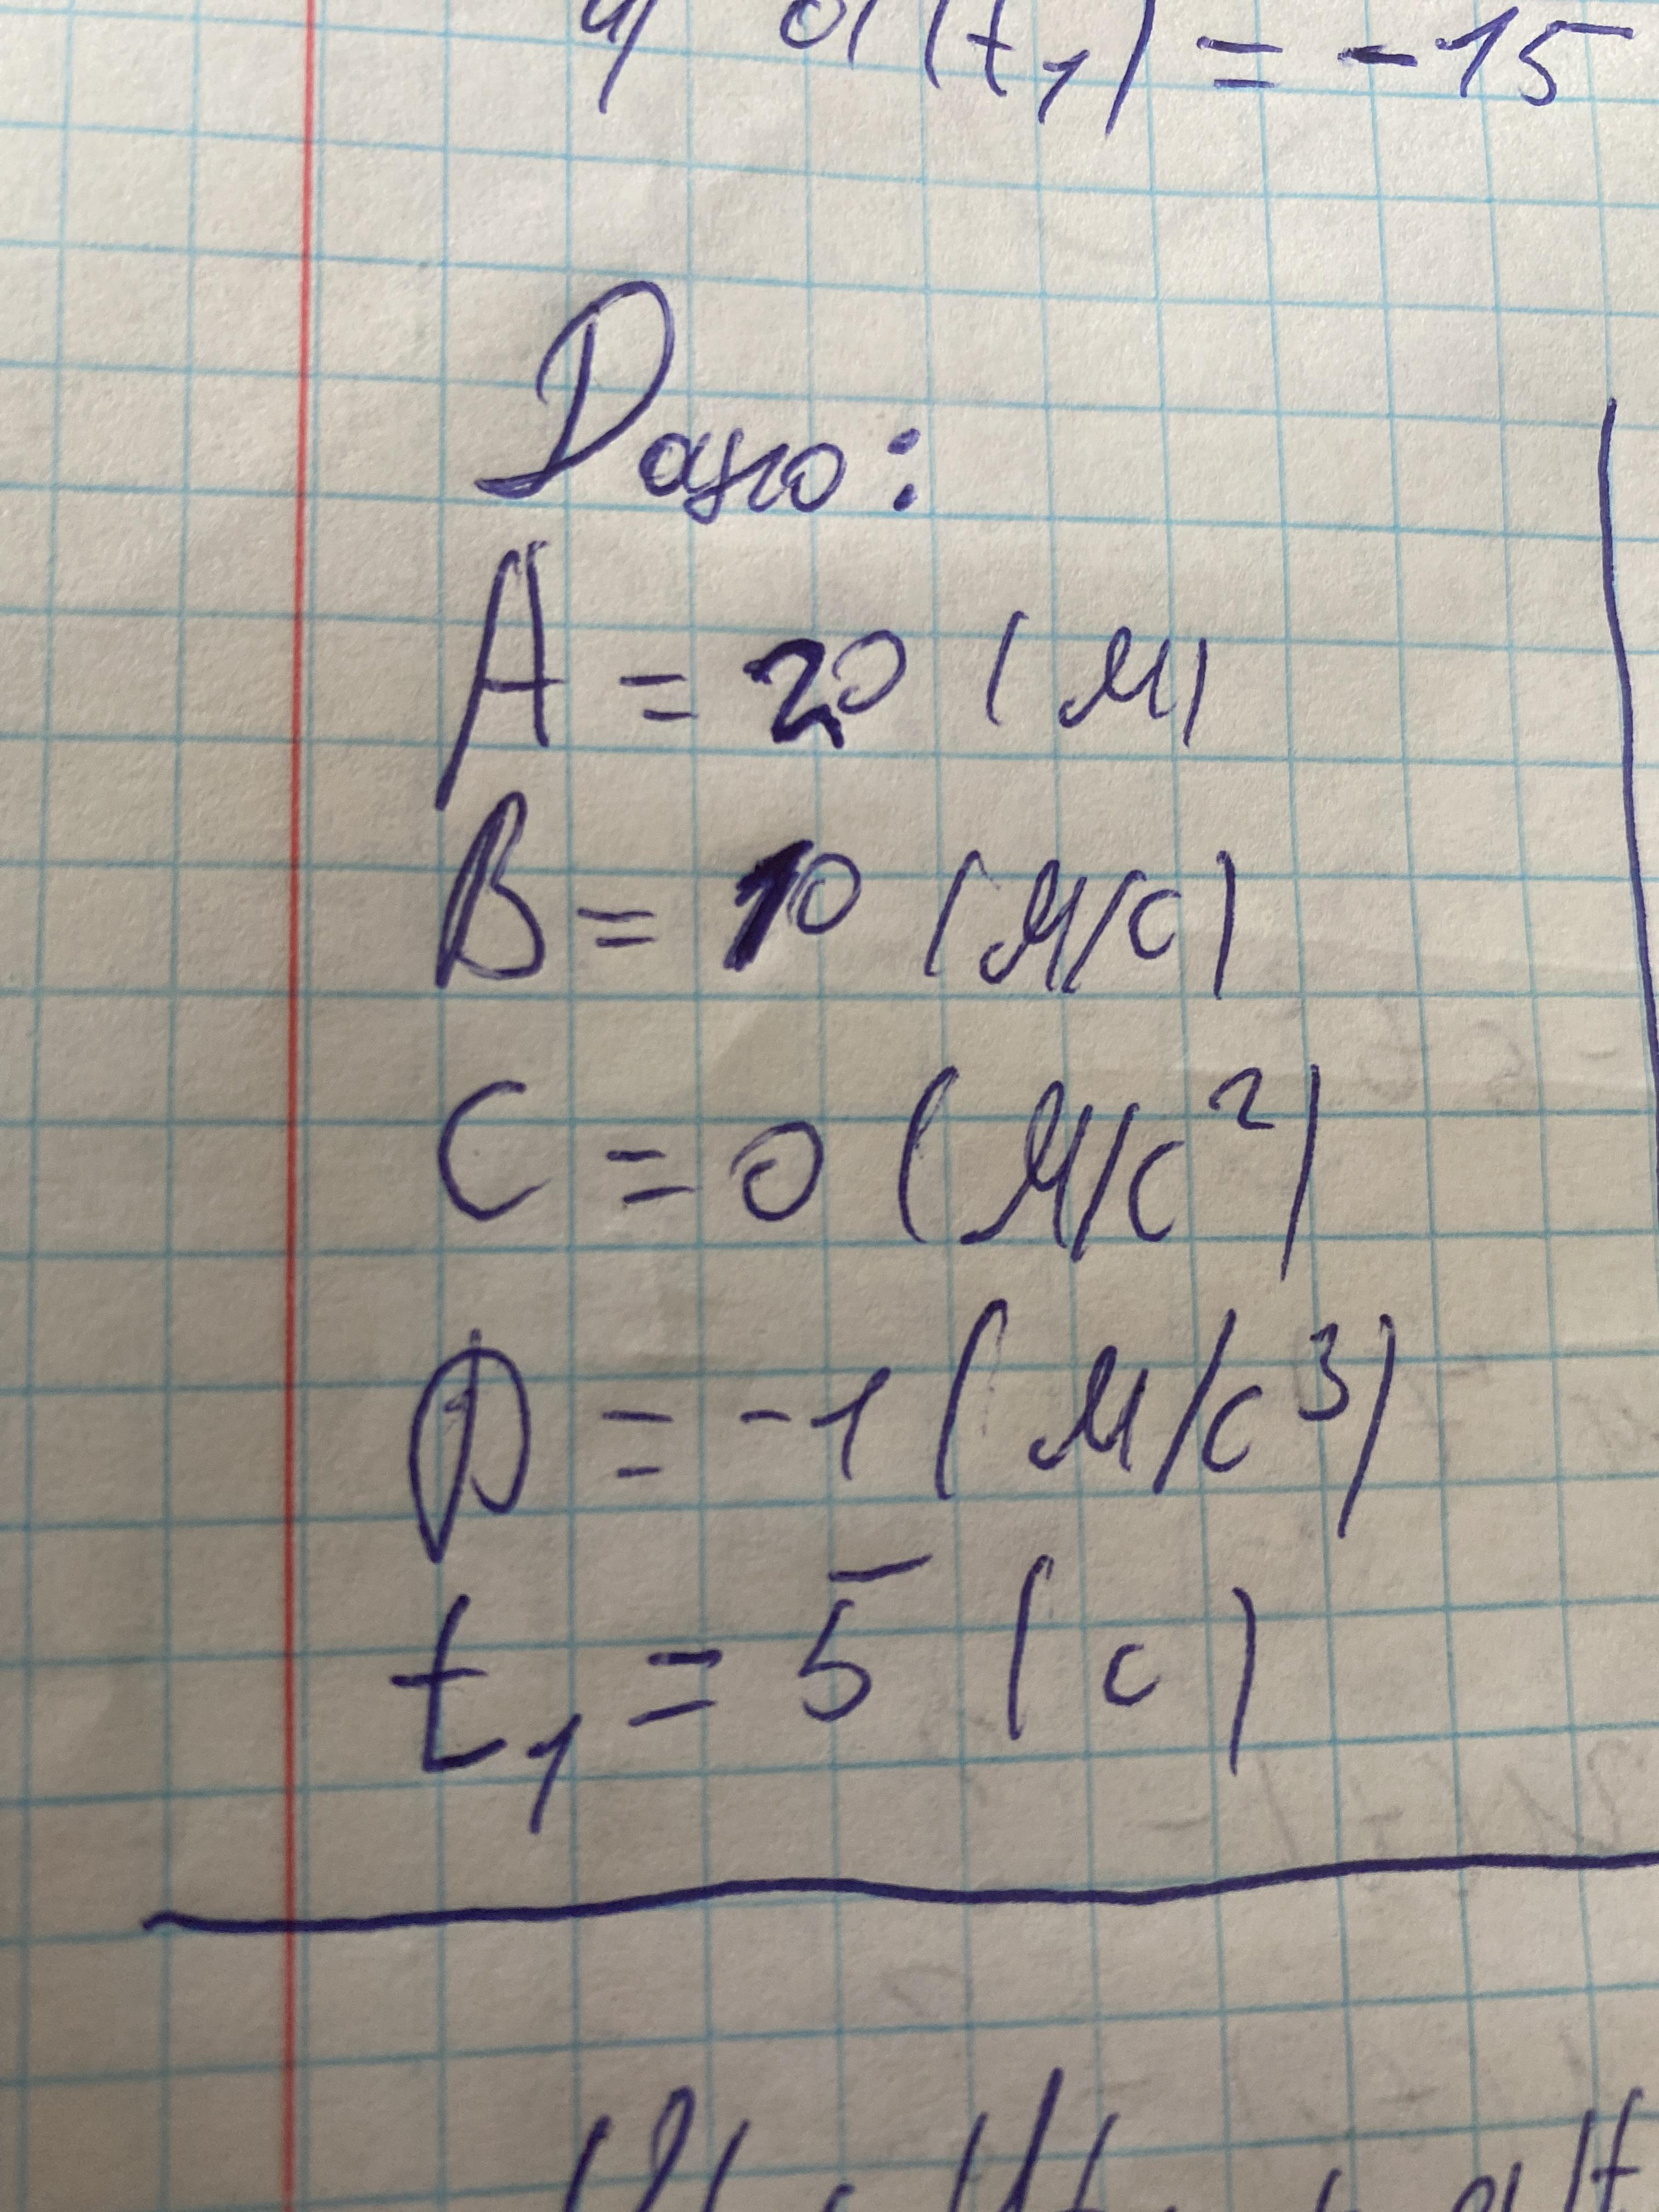 4) a(t₁) = -15
Дано:
A = 20 (м)
B = 10 (м/с)
C = 0 (м/с²)
D = -1 (м/с³)
t₁ = 5 (с)